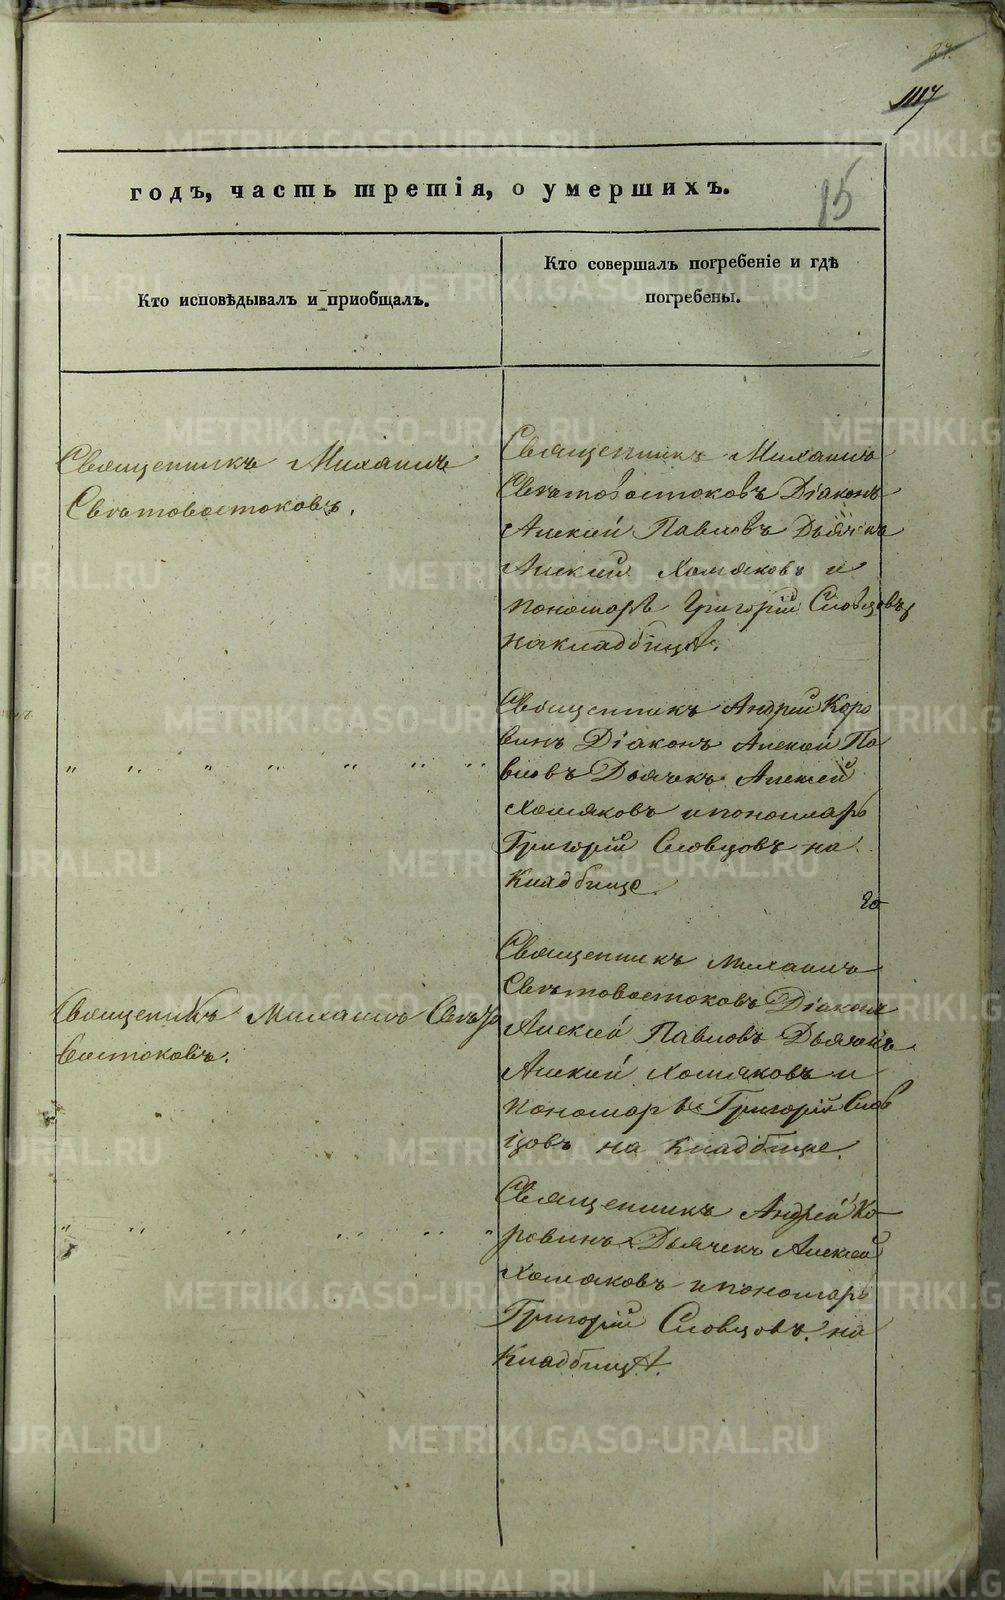 15
годъ, часть третія, о умершихъ.
Кто исповѣдывалъ и пріобщалъ.
Кто совершалъ погребеніе и гдѣ
погребены.
Священникъ Михаилъ
Свѣтовостоковъ.
Священникъ Михаилъ
Свѣтовостоковъ Діаконъ
Алексій Павловъ Дьячекъ
Алексій Хомяковъ и
пономарь Григорій Словцовъ,
на кладбищѣ.
" " " " " " "
Священникъ Андрей Коро
винъ Діаконъ Алексѣй Па
вловъ Дьячекъ Алексѣй
Хомяковъ и пономарь
Григорій Словцовъ на
Кладбище.
Священникъ Михаилъ Свѣто
востоковъ.
Священникъ Михаилъ
Свѣтовостоковъ Діаконъ
Алексѣй Павловъ Дьячекъ
Алексѣй Хомяковъ и
пономарь Григорій Слов
цовъ на кладбище.
" " " " " "
Священникъ Андрей Ко
ровинъ Дьячекъ Алексѣй
Хомяковъ и пономарь
Григорій Словцовъ. на
Кладбищѣ.
METRIKI.GASO-URAL.RU